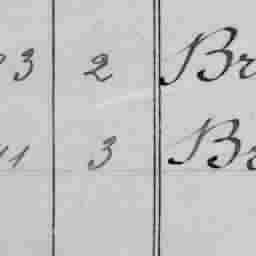 3 2 Br
11 3 Br